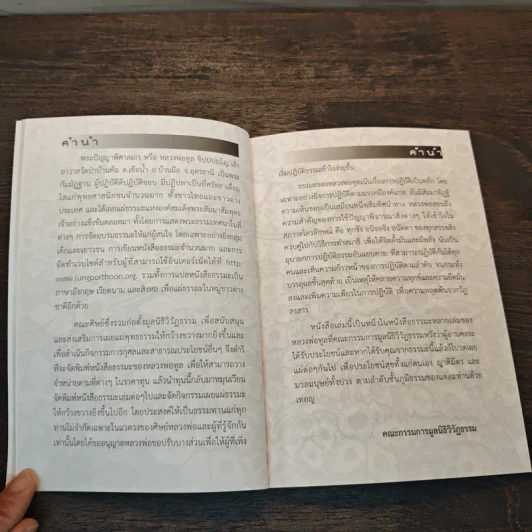 คำนำ
พระปัญญาพิศาลเถร หรือ หลวงพ่อทูล ขิปฺปปญฺโญ เจ้า
อาวาสวัดป่าบ้านค้อ ต.เขือน้ำ อ.บ้านผือ จ.อุดรธานี เป็นพระ
กัมมัฏฐาน ผู้ปฏิบัติดีปฏิบัติชอบ มีปฏิปทาเป็นที่ศรัทธาเลื่อม
ใสแก่พุทธศาสนิกชนจำนวนมาก ทั้งชาวไทยและชาวต่าง
ประเทศ และได้เผยแผ่ธรรมะแห่งองค์สมเด็จพระสัมมาสัมพุทธ
เจ้าอย่างแข็งขันตลอดมา ทั้งโดยการแสดงพระธรรมเทศนาในที่
ต่างๆ การจัดอบรมธรรมะให้แก่ผู้สนใจ โดยเฉพาะอย่างยิ่งกลุ่ม
เด็กและเยาวชน การเขียนหนังสือธรรมะจำนวนมาก และการ
จัดทำเวปไซต์สำหรับผู้ที่สามารถใช้อินเตอร์เน็ตได้ที่ http:
www.luangporthoon.org. รวมทั้งการแปลหนังสือธรรมะเป็น
ภาษาอังกฤษ เวียดนาม และสิงหล เพื่อเผยแผ่ธรรมะในหมู่ชาวต่าง
ชาติอีกด้วย
คณะศิษย์ซึ่งร่วมก่อตั้งมูลนิธิวิวัฏธรรม เพื่อสนับสนุน
และส่งเสริมการเผยแผ่พุทธธรรมให้กว้างขวางมากยิ่งขึ้นและ
เพื่อดำเนินกิจกรรมการกุศลและสาธารณประโยชน์อื่นๆ จึงดำริ
ที่จะจัดพิมพ์หนังสือธรรมะของหลวงพ่อทูล เพื่อให้สามารถวาง
จำหน่ายตามที่ต่างๆ ในราคาทุน แล้วนำทุนนี้กลับมาหมุนเวียน
จัดพิมพ์หนังสือธรรมะเล่มต่อๆไปและจัดกิจกรรมเผยแผ่ธรรมะ
ให้กว้างขวางยิ่งขึ้นไปอีก โดยประสงค์ให้เป็นธรรมทานแก่ทุก
ท่านไม่จำกัดเฉพาะในแวดวงของศิษย์หลวงพ่อและผู้ที่รู้จักกัน
เท่านั้นโดยได้ขออนุญาตหลวงพ่อขอปรับบางส่วนเพื่อให้ผู้ที่เพิ่ง
คำนำ
เริ่มปฏิบัติธรรมเข้าใจง่ายขึ้น
ธรรมะของหลวงพ่อทูลเน้นเรื่องการปฏิบัติเป็นหลัก โดย
เฉพาะอย่างยิ่งการปฏิบัติตามมรรคมีองค์แปด อันมีสัมมาทิฏฐิ
ความเห็นชอบเป็นเสมือนหนึ่งเข็มทิศนำทาง หลวงพ่อสอนถึง
ความสำคัญของการใช้ปัญญาพิจารณาสิ่งต่างๆ ให้เข้าใจใน
สภาวะไตรลักษณ์ คือ ทุกขัง อนิจจัง อนัตตา ของทุกสรรพสิ่ง
ควบคู่ไปกับวิธีการทำสมาธิ เพื่อให้จิตตั้งมั่นและมีพลัง นับเป็น
อุบายการปฏิบัติธรรมอันแยบคาย ที่สามารถปฏิบัติกันได้ทุก
คนและเห็นความก้าวหน้าของการปฏิบัติตามลำดับ จนกระทั่ง
บรรลุผลขั้นสุดท้าย เป็นเหตุให้คลายความทุกข์และความยึดมั่น
ลงและเพิ่มความเพียรในการปฏิบัติ เพื่อความหลุดพ้นจากวัฏ
สงสาร
หนังสือเล่มนี้เป็นหนึ่งในหนังสือธรรมะหลายเล่มของ
หลวงพ่อทูลที่คณะกรรมการมูลนิธิวิวัฏธรรมหวังว่าผู้อ่านคงจะ
ได้รับประโยชน์และหากได้รับคุณจากธรรมะนี้แล้วก็โปรดเผย
แผ่ต่อๆกันไป เพื่อประโยชน์สุขทั้งแก่ตนเอง ญาติมิตร และ
มวลมนุษย์ทั้งปวง ตามลำดับชั้นภูมิธรรมของแต่ละท่านด้วย
เทอญ
คณะกรรมการมูลนิธิวิวัฏธรรม